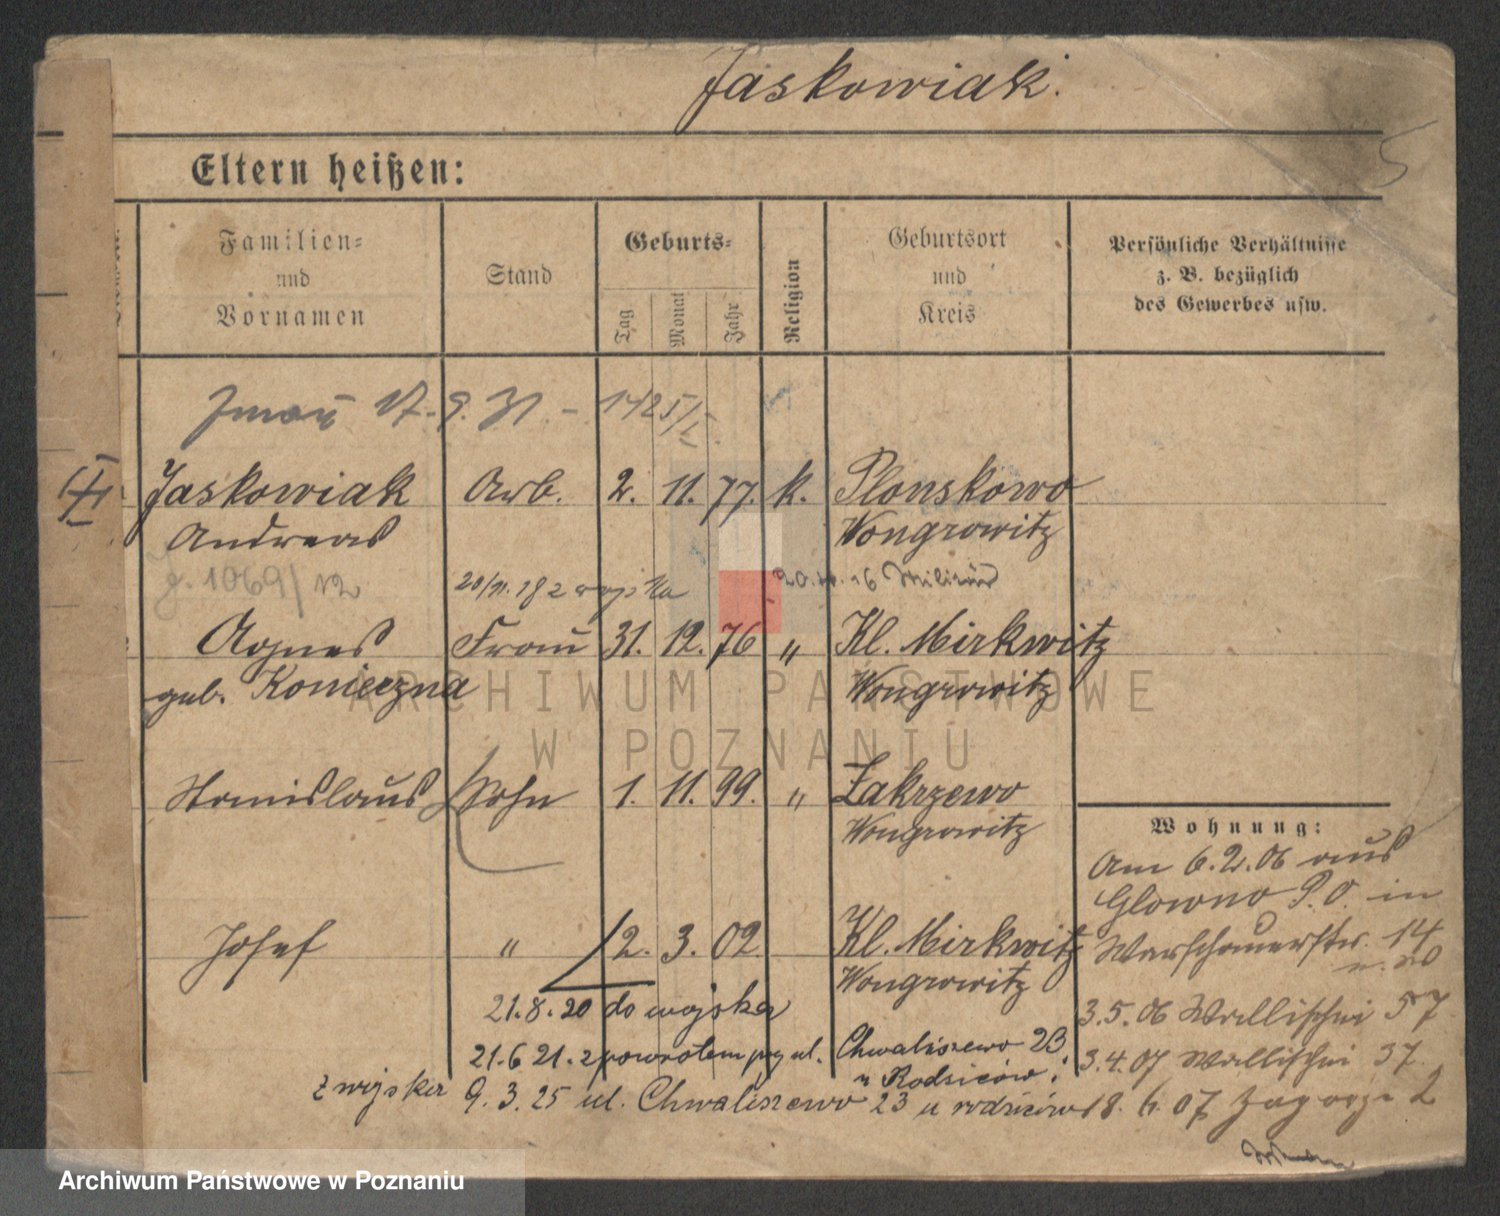 Jaskowiak.
5
Eltern heißen:
Familien=
und
Vornamen
Stand
Geburts=
Tag
Monat
Jahr
Religion
Geburtsort
und
Kreis
Persönliche Verhältnisse
z. B. bezüglich
des Gewerbes usw.
Zmarł 17.9.31. - 1425/
Jaskowiak Arb. 2. 11. 77. k. Plonskowo
Andreas Wongrowitz
J. 1069/12 20/11.18 z wojska 20. 16 Militär
Agnes Frau 31. 12. 76 " Kl. Mirkowitz
geb. Konieczna Wongrowitz
Stanislaus Sohn 1. 11. 99. " Zakrzewo
Wongrowitz
Josef " 2. 3. 02. Kl. Mirkowitz
Wongrowitz
21.8.20 do wojska
21.6 21. z powrotem przy ul. Chwaliszewo 23
u Rodziców.
z wojska 9. 3. 25 ul. Chwaliszewo 23 u rodziców
Wohnung:
Am 6.2.06 aus
Glowno P.O. in
Warschauerstr. 14
3.5.06 Wallischei 57
3.4.07 Wallischei 37.
18. 6. 07 Zagorze 2
ARCHIWUM PAŃSTWOWE
W POZNANIU
Archiwum Państwowe w Poznaniu